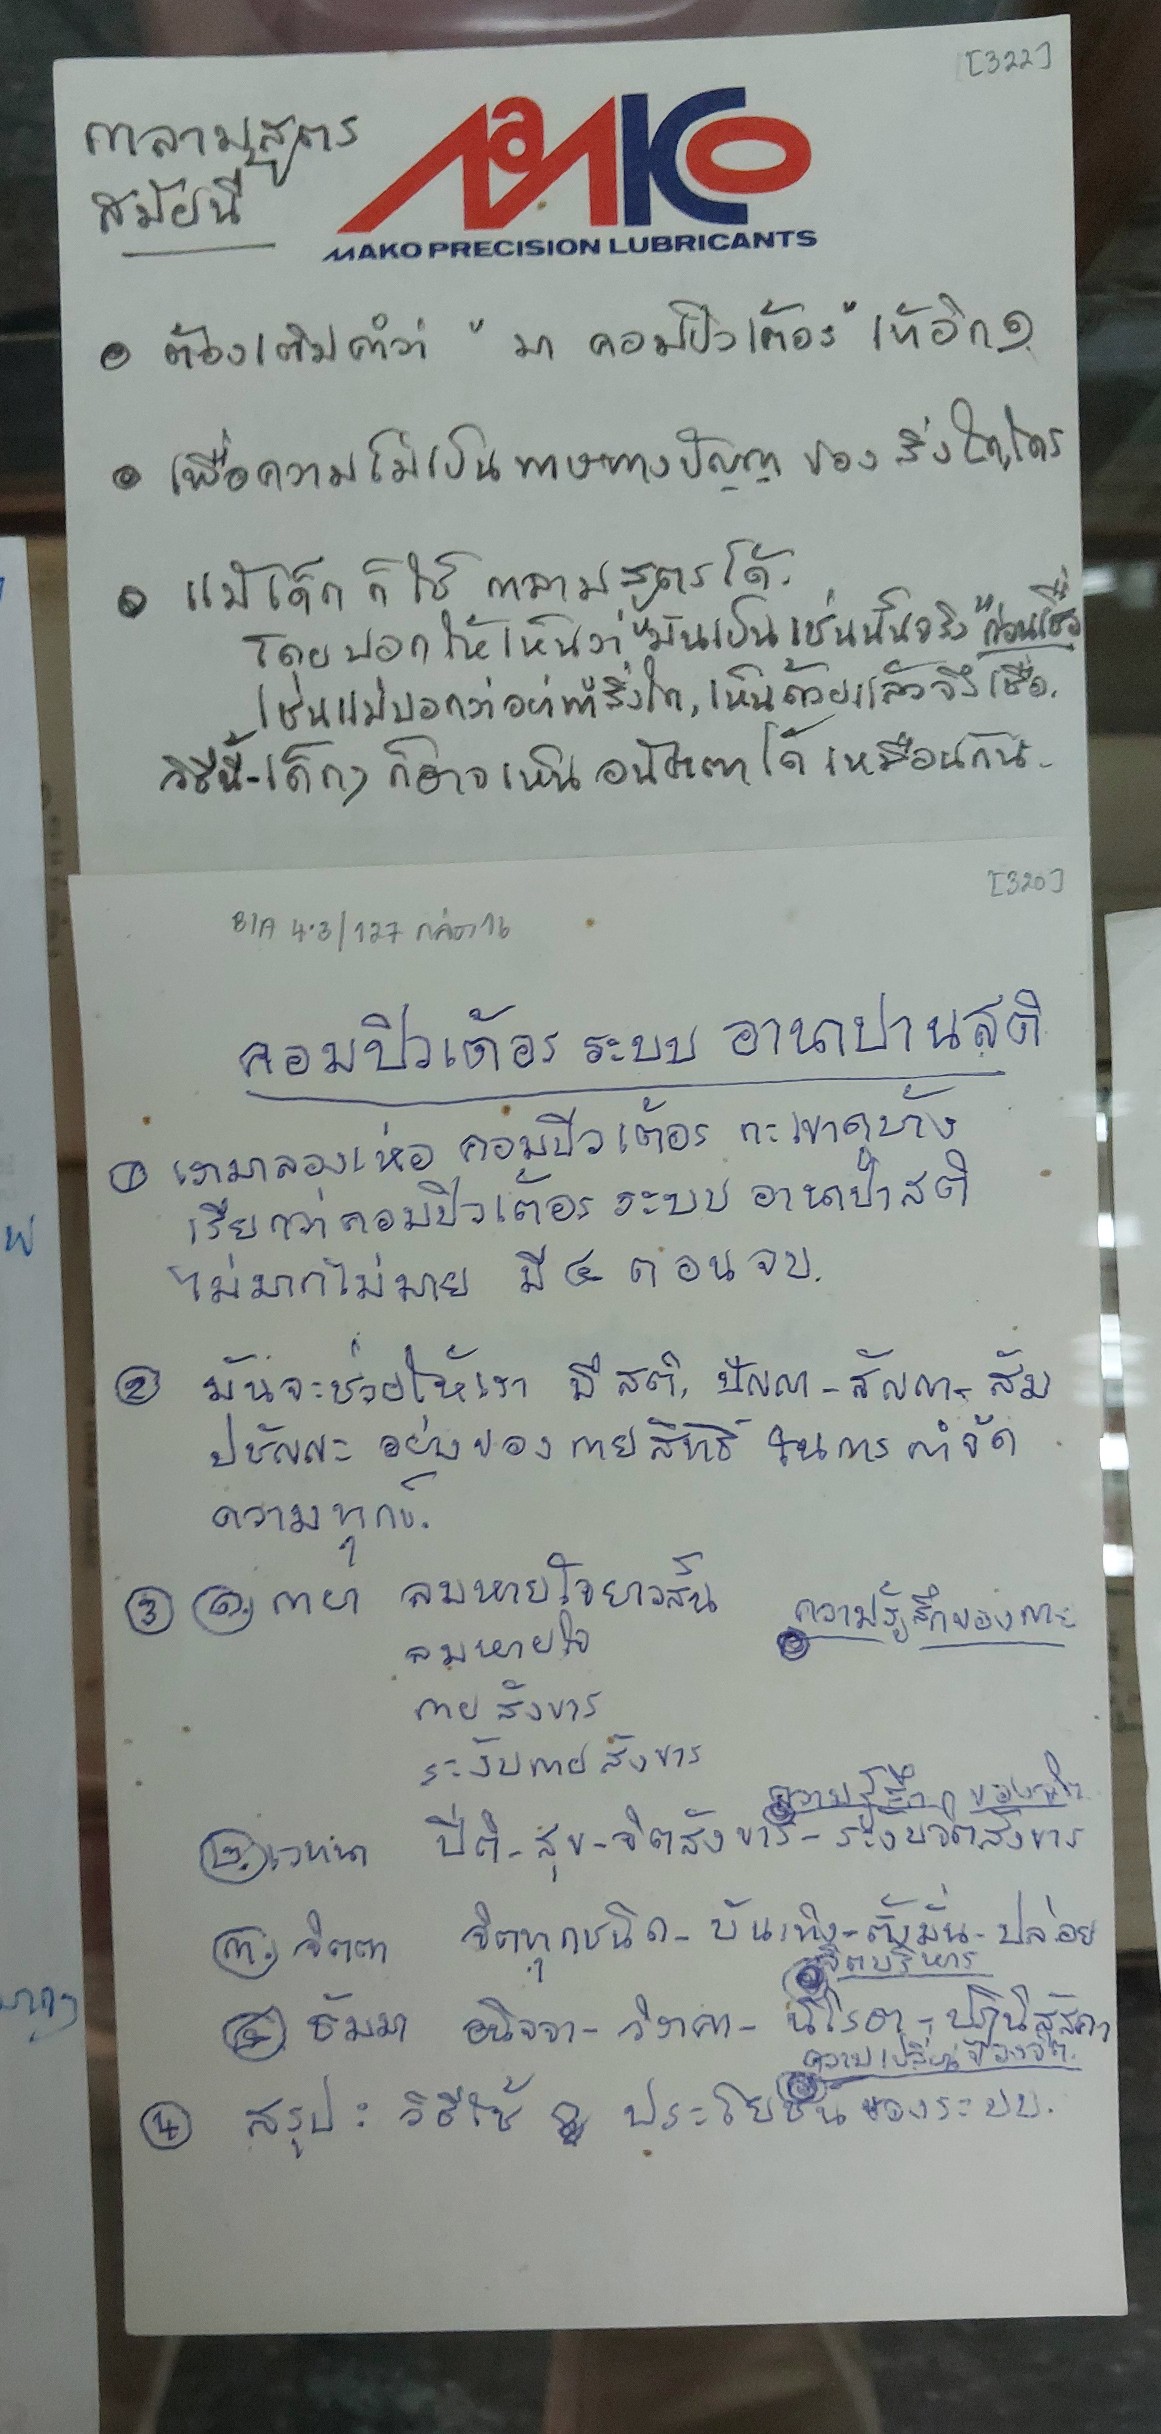 [322]
กาลามสูตร
สมัยนี้
MaKO
MAKO PRECISION LUBRICANTS
ต้องเติมคำว่า "มา คอมปิวเต้อร์" เข้าอีก ๑.
เพื่อความไม่เป็นทาษทางปัญญา ของ สิ่งใด,ใคร
แม้เด็ก ก็ใช้ กาลามสูตรได้.
โดยบอกให้เห็นว่า "มันเป็นเช่นนั้นจริง" ก่อนเชื่อ
เช่นแม่บอกว่าอย่าทำสิ่งใด, เห็นด้วยแล้วจึงเชื่อ.
วิธีนี้-เด็กๆ ก็อาจเห็น อนัตตา ได้ เหมือนกัน.
[320]
BIA 4.3/127 กล่อง 16
คอมปิวเต้อร ระบบ อานาปานสติ
① เรามาลองเห่อ คอมปิวเต้อร กะเขาดูบ้าง
เรียกว่าคอมปิวเต้อร ระบบ อานาปาสติ
ไม่มากไม่มาย มี ๔ ตอนจบ.
② มันจะช่วยให้เรา มีสติ, ปัญญา - สัญญา - สัม
ปชัญญะ อย่างของกายสิทธิ์ ในการกำจัด
ความทุกข์.
③ ๑. กายา ลมหายใจยาวสั้น
ความรู้สึกของกาย
ลมหายใจ
กายสังขาร
ระงับกายสังขาร
ความรู้สึก ของจิต
๒. เวทนา ปีติ - สุข - จิตสังขาร - ระงับจิตสังขาร
๓. จิตตา จิตทุกชนิด - บันเทิง - ตั้งมั่น - ปล่อย
จิตบริหาร
๔. ธัมมา อนิจจา - วิราคา - นิโรธา - ปฏินิสสัคคา
ความเปลี่ยนของจิต.
④ สรุป: วิธีใช้ ประโยชน์ ของระบบ.